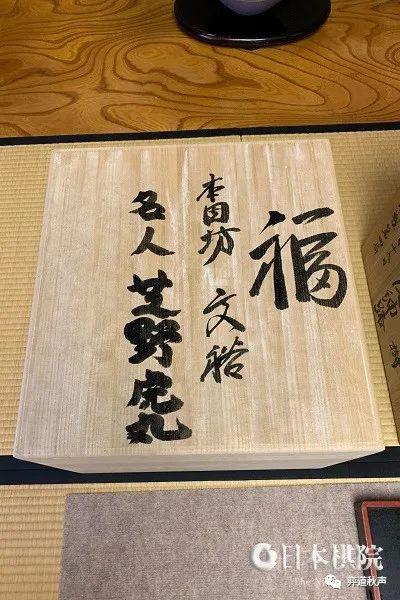 福
本因坊 文裕
名人 芝野虎丸
日本棋院
弈道秋声